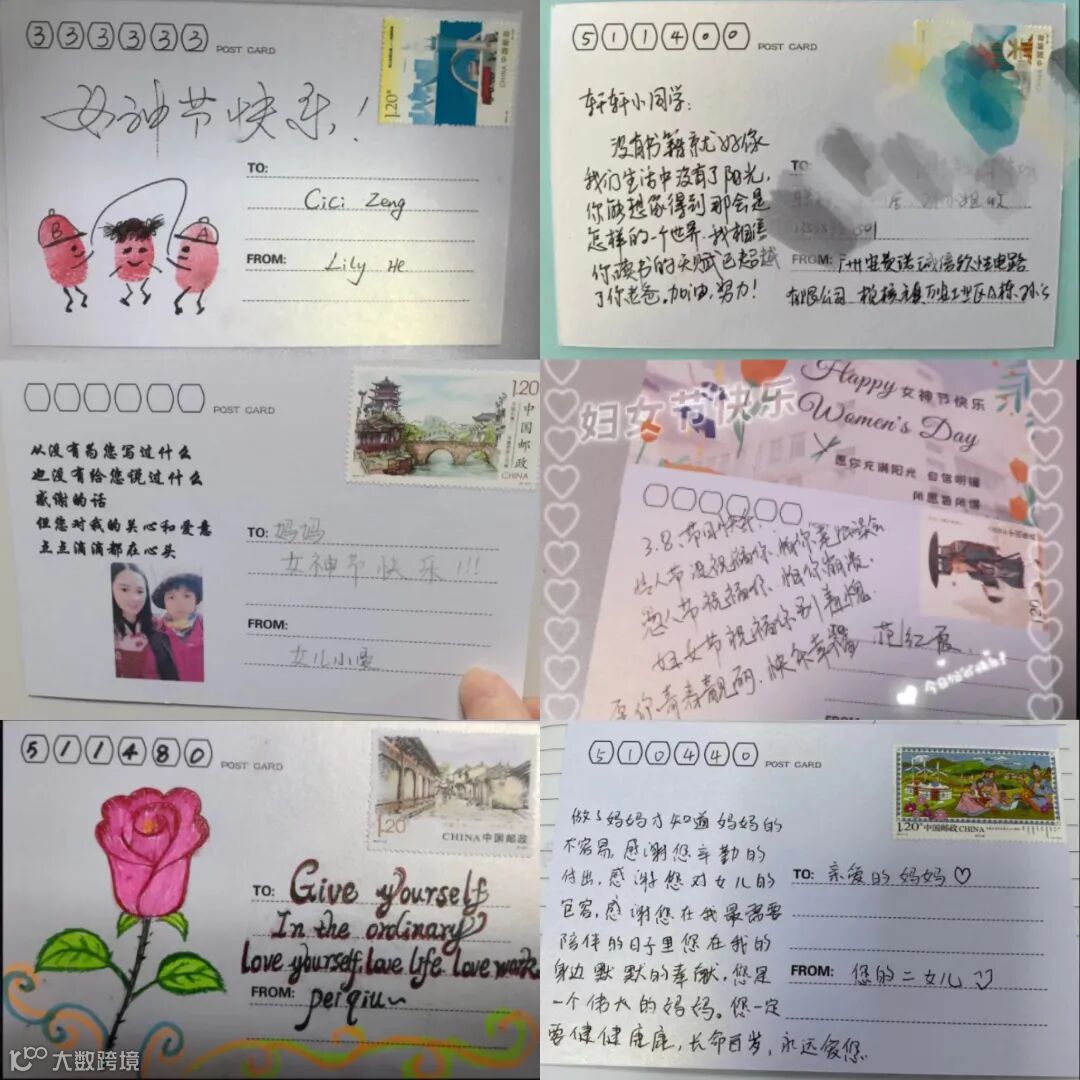 333333
POST CARD
1.20
女神节快乐!
TO:
Cici Zeng
B
A
FROM:
Lily He
511400
POST CARD
轩轩小同学:
没有书籍就好像
我们生活中没有了阳光,
你能想像得到那会是
怎样的一个世界.我相信
你读书的天赋已超越
了你老爸.加油,努力!
TO:
FROM:
广州安费诺诚信软性电路
有限公司
POST CARD
1.20
中国邮政
CHINA
从没有为您写过什么
也没有给您说过什么
感谢的话
但您对我的关心和爱意
点点滴滴都在心头
TO:
妈妈
女神节快乐!!!
FROM:
女儿小
妇女节快乐
Happy 女神节快乐
Women's Day
愿你充满阳光 自信明媚
3.8.节日快乐.
情人节没祝福你,怕你
愚人节祝福你,怕你
妇女节祝福你别羞愧.
愿你青春靓丽,快乐幸福
范红霞
1.20
FROM
511480
POST CARD
1.20
CHINA中国邮政
TO:
Give yourself
In the ordinary
Love yourself, Love life Love work
FROM:
peiqiu~
510440
POST CARD
1.20 中国邮政CHINA
做了妈妈才知道妈妈的
不容易,感谢您辛勤的
付出,感谢您对女儿的
包容,感谢您在我最需要
陪伴的日子里您在我的
身边默默的奉献,您是
一个伟大的妈妈。您一定
要健健康康,长命百岁,永远爱您
TO:
亲爱的妈妈♡
FROM:
您的二女儿
大数跨境